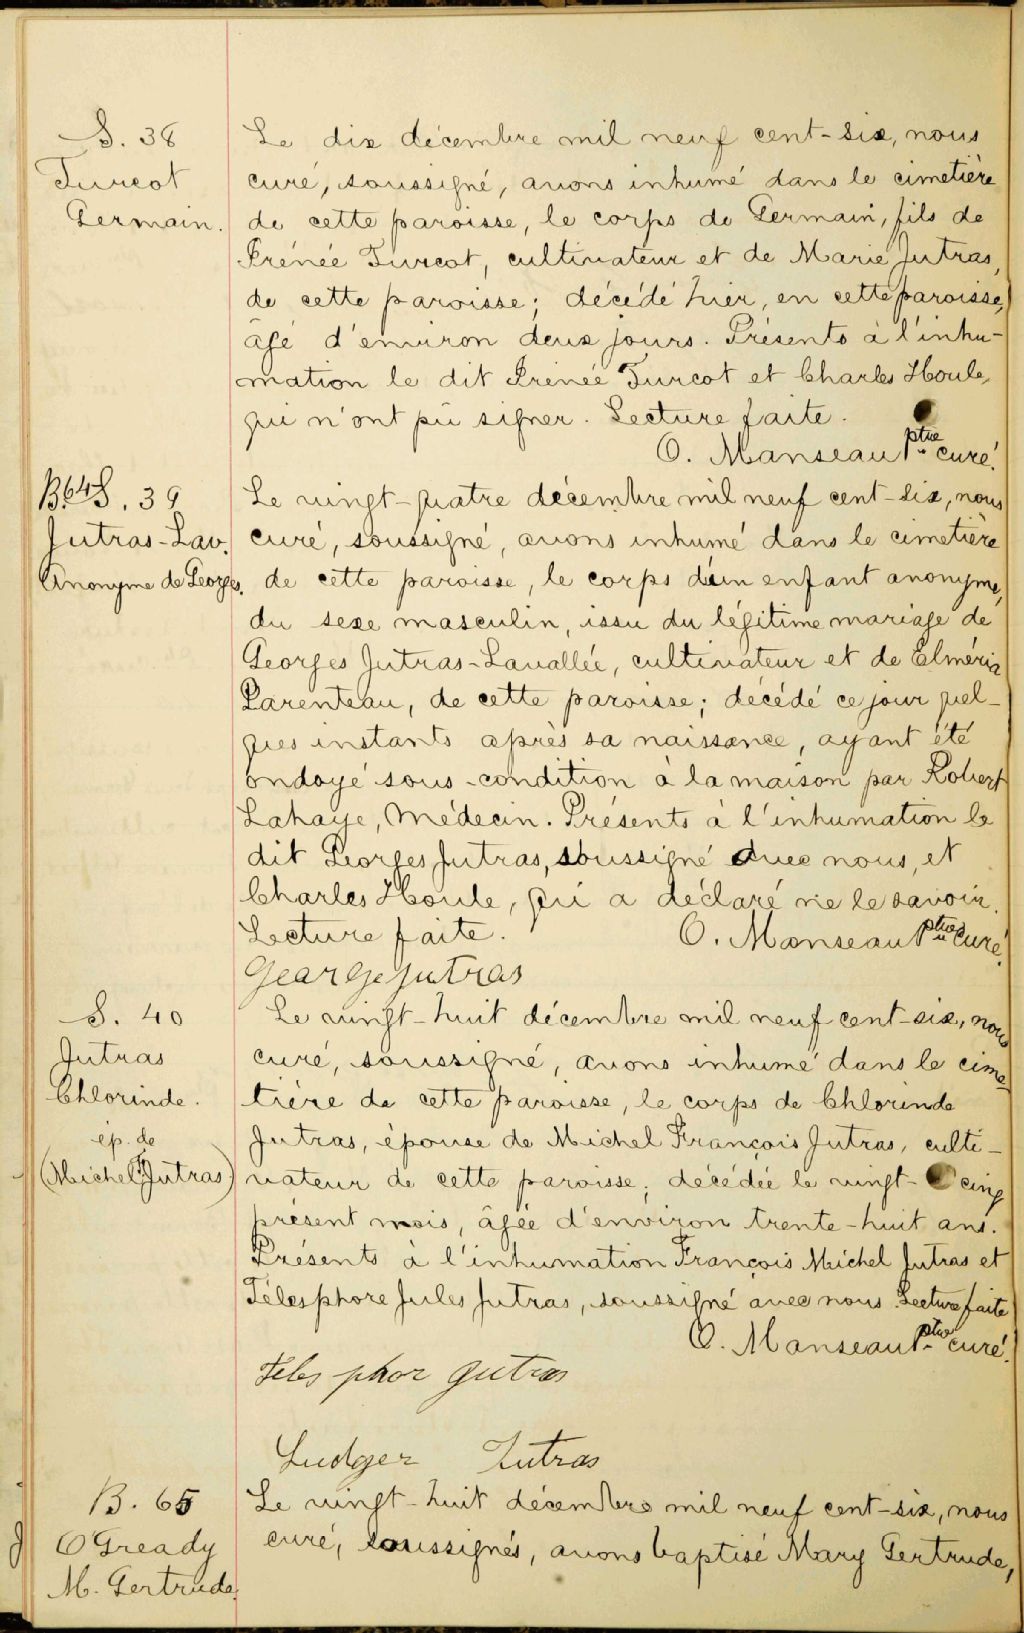 S. 38
Turcot
Germain.
Le dix décembre mil neuf cent-six, nous
curé, soussigné, avons inhumé dans le cimetière
de cette paroisse, le corps de Germain, fils de
Irénée Turcot, cultivateur et de Marie Jutras,
de cette paroisse; décédé hier, en cette paroisse,
âgé d'environ deux jours. Présents à l'inhu-
mation le dit Irénée Turcot et Charles Houle,
qui n'ont pu signer. Lecture faite.
O. Manseau Ptre curé.
B64 S. 39
Jutras-Lav.
Anonyme de Georges.
Le vingt-quatre décembre mil neuf cent-six, nous
curé, soussigné, avons inhumé dans le cimetière
de cette paroisse, le corps d'un enfant anonyme,
du sexe masculin, issu du légitime mariage de
Georges Jutras-Lavallée, cultivateur et de Elméria
Parenteau, de cette paroisse; décédé ce jour quel-
ques instants après sa naissance, ayant été
ondoyé sous-condition à la maison par Robert
Lahaye, Médecin. Présents à l'inhumation le
dit Georges Jutras, soussigné avec nous, et
Charles Houle, qui a déclaré ne le savoir.
Lecture faite. O. Manseau Ptre curé.
George Jutras
S. 40
Jutras
Chlorinde.
ép. de
(Michel F. Jutras)
Le vingt-huit décembre mil neuf cent-six, nous
curé, soussigné, avons inhumé dans le cime-
tière de cette paroisse, le corps de Chlorinde
Jutras, épouse de Michel François Jutras, culti-
vateur de cette paroisse; décédée le vingt-cinq
présent mois, âgée d'environ trente-huit ans.
Présents à l'inhumation François Michel Jutras et
Télesphore Jules Jutras, soussigné avec nous. Lecture faite
O. Manseau Ptre curé.
Teles phor Jutras
Ludger Jutras
B. 65
O'Gready
M. Gertrude.
Le vingt-huit décembre mil neuf cent-six, nous
curé, soussignés, avons baptisé Mary Gertrude,